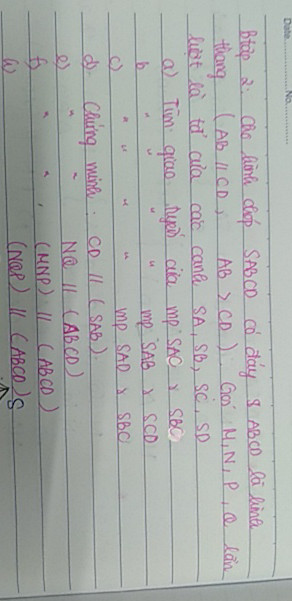 Date............No............
Btập 2: Cho hình chóp SABCD có đáy ABCD là hình
thang (AB // CD, AB > CD). Gọi M, N, P, Q lần
lượt là tđ của các cạnh SA, SB, SC, SD
a) Tìm giao tuyến của mp SAC x SBD
b " " " " mp SAB x SCD
c) " " " " mp SAD x SBC
d) Chứng minh: CD // (SAB)
e) " " NQ // (ABCD)
f) " " (MNP) // (ABCD)
(NQP) // (ABCD)